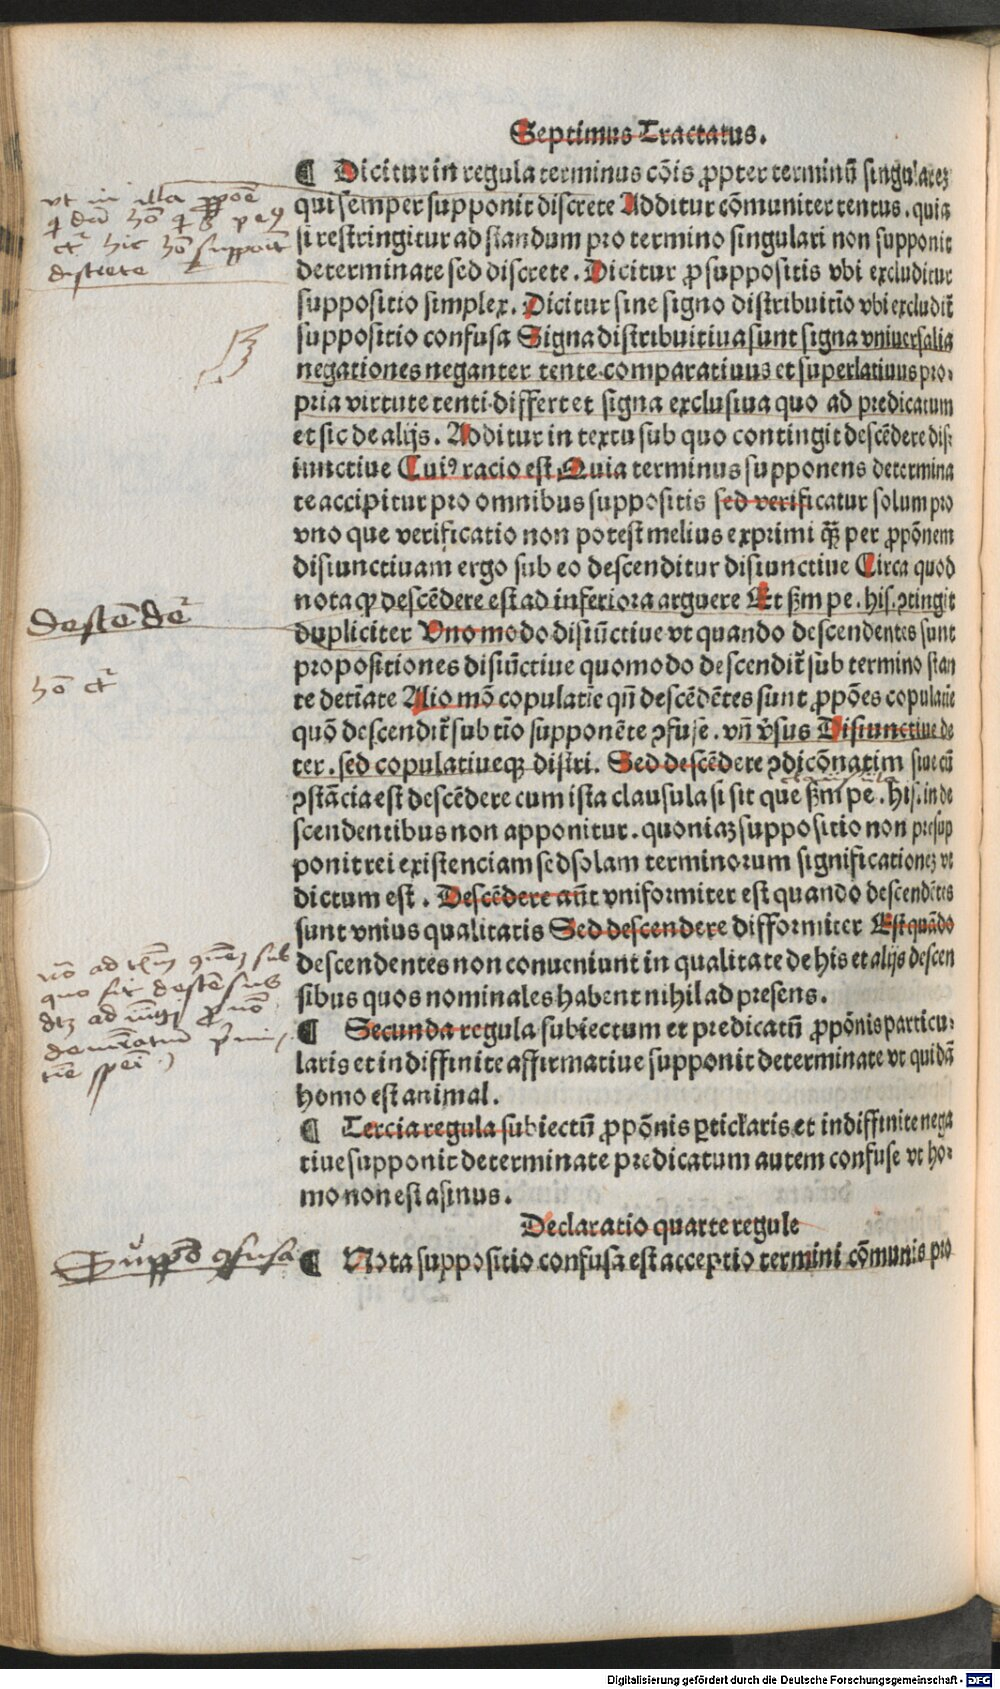 Septimus Tractatus.
¶ Dicitur in regula terminus cõis ꝓpter terminũ singularez
qui semper supponit discrete Additur cõmuniter tentus. quia
si restringitur ad standum pro termino singulari non supponit
determinate sed discrete. Dicitur ꝓ suppositis vbi excluditur
suppositio simplex. Dicitur sine signo distributiõ vbi excludit̃
suppositio confusa Signa distributiua sunt signa vniuersalia
negationes neganter tente comparatiuus et superlatiuus pro-
pria virtute tenti differt et signa exclusiua quo ad predicatum
et sic de alijs. Additur in textu sub quo contingit descẽdere dis-
iunctiue Cuiꝰ racio est Quia terminus supponens determina
te accipitur pro omnibus suppositis sed verificatur solum pro
vno que verificatio non potest melius exprimi q̃ꝫ per ꝓpõnem
disiunctiuam ergo sub eo descenditur disiunctiue Circa quod
nota ꝙ descẽdere est ad inferiora arguere Et ẜm pe. his. ꝯtingit
dupliciter Vno modo disiũctiue vt quando descendentes sunt
propositiones disiũctiue quomodo descendit̃ sub termino stan
te det̃iate Alio mõ copulatie qñ descẽdẽtes sunt ꝓpões copulatie
quõ descendit̃ sub tĩo supponẽte ꝯfuse. vñ ṽsus Disiunctiue de
ter. sed copulatiueqꝫ distri. Sed descẽdere ꝯdicõnatim siue cũ
ꝯstãcia est descẽdere cum ista clausula si sit que ẜm pe. his. in de
scendentibus non apponitur. quoniaꝫ suppositio non presup
ponit rei existenciam sed solam terminorum significationeꝫ vt
dictum est. Descẽdere aũt vniformiter est quando descendẽtes
sunt vnius qualitatis Sed descendere difformiter Est quãdo
descendentes non conueniunt in qualitate de his et alijs descen
sibus quos nominales habent nihil ad presens.
¶ Secunda regula subiectum et predicatũ ꝓpõnis particu-
laris et indiffinite affirmatiue supponit determinate vt quidã
homo est animal.
¶ Tercia regula subiectũ ꝓpõnis ꝑticlaris et indiffinite nega
tiue supponit determinate predicatum autem confuse vt ho-
mo non est asinus.
Declaratio quarte regule
¶ Nota suppositio confusa est acceptio termini cõmunis pro
vt in illa ꝓpõe
discrete
descẽdẽr
Suppõ ꝯfusa
Digitalisierung gefördert durch die Deutsche Forschungsgemeinschaft - DFG